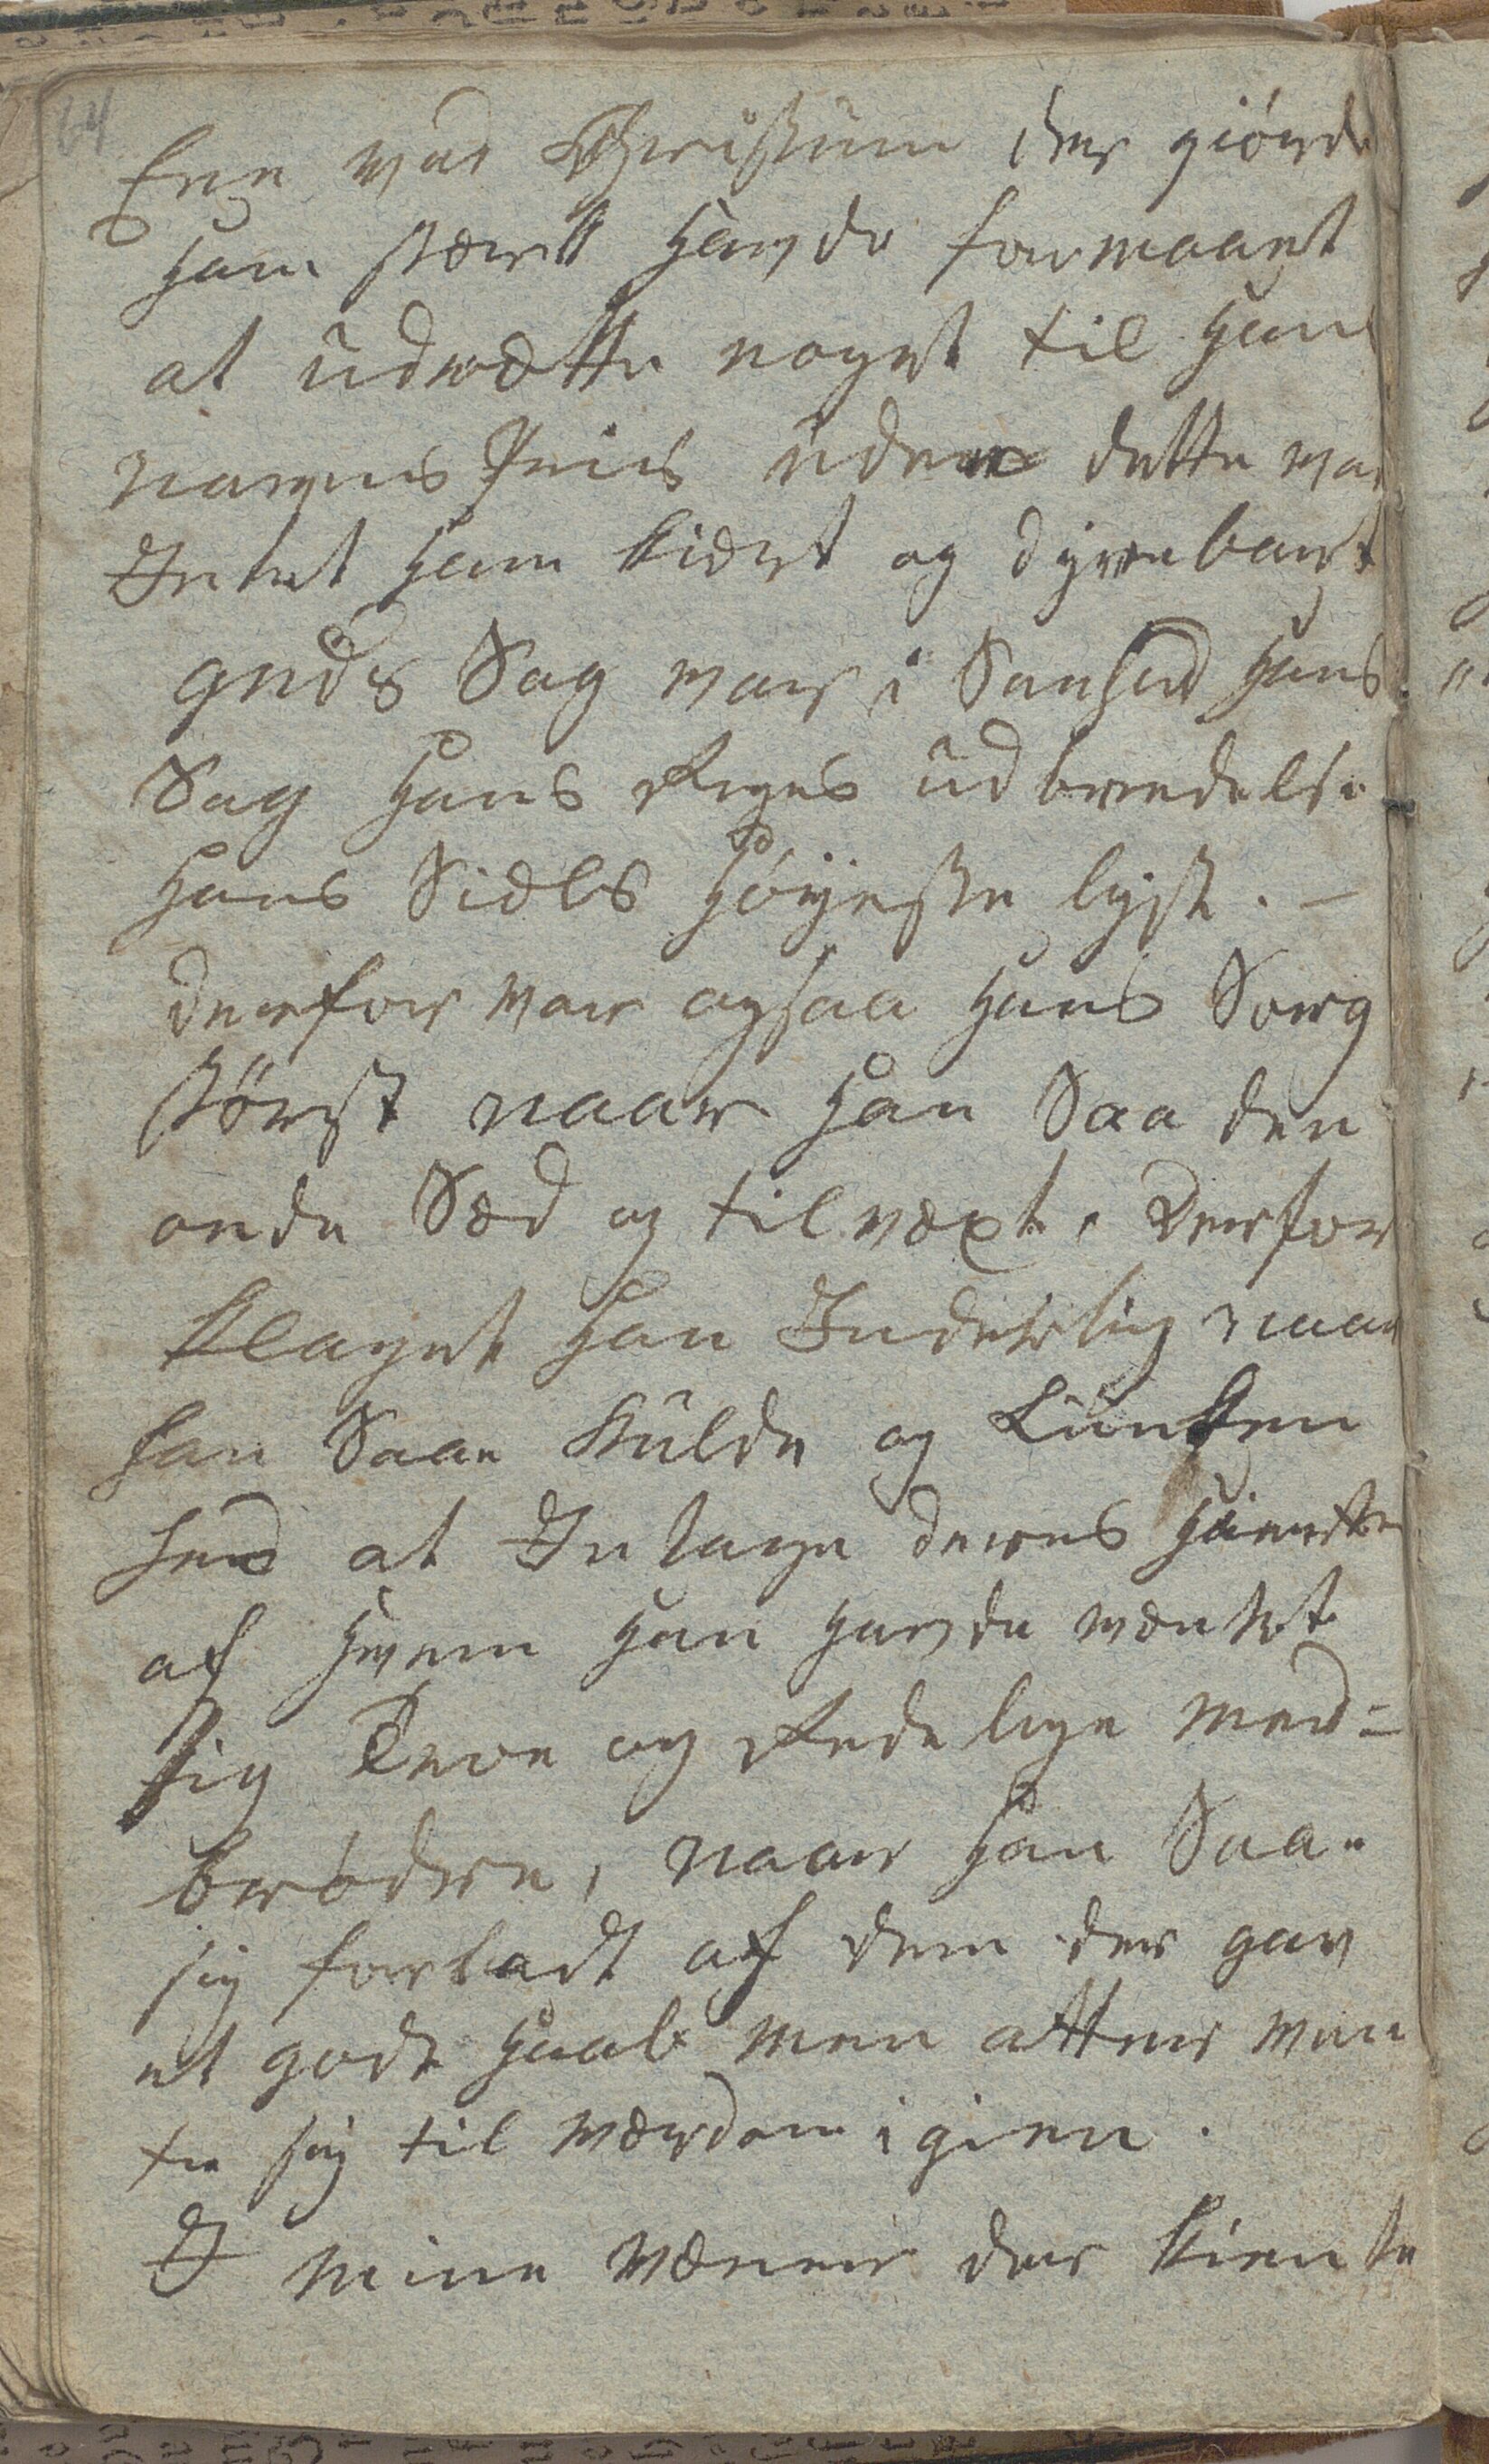 64
Ene ved Christum der giörde
ham stærk havde formaaet
at üdrætte noget til hans
navens Priis üden dette var
Intet ham kiært og dyrebart
guds Sag var i Sanhed hans
Sag hans Riges üdbredelse
hans Siæls höÿeste lyst. -
derfor var ogsaa hans Sorg
störst naar han Saa den
onde Sæd og tilvæxt. Derfor
klaget han Inderlig naar
han Saae Külde og Lünken
hed at Intage deres hierte
af hvem han havde væntet
sig Troe og Redelige med=
brødre, naar han Saae
sig forladt af dem der gav
et godt haab men atter ven
te sig til værden igien.
I mine vænner der kiente